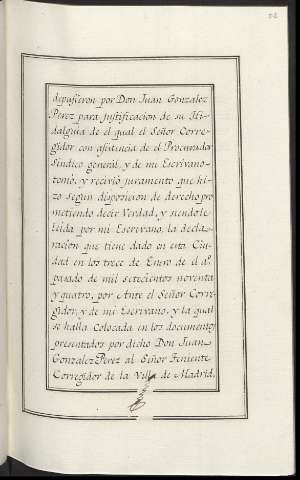 depusieron por Don Juan Gonzalez
Perez para justificacion de su Hi-
dalguia de el qual el Señor Corre-
gidor con asistencia de el Procurador
Sindico general, y de mi Escrivano
tomò, y recivió juramento que hi-
zo segun disposicion de derecho pro-
metiendo decir Verdad, y siendole
Leida por mi Escrivano, la decla-
racion que tiene dado en esta Ciu-
dad en los trece de Enero de el año
pasado de mil setecientos noventa
y quatro, por Ante el Señor Corre-
gidor, y de mi Escrivano, y la qual
se halla Colocada en los documentos
presentados por dicho Don Juan
Gonzalez Perez al Señor Teniente
Corregidor de la Villa de Madrid,